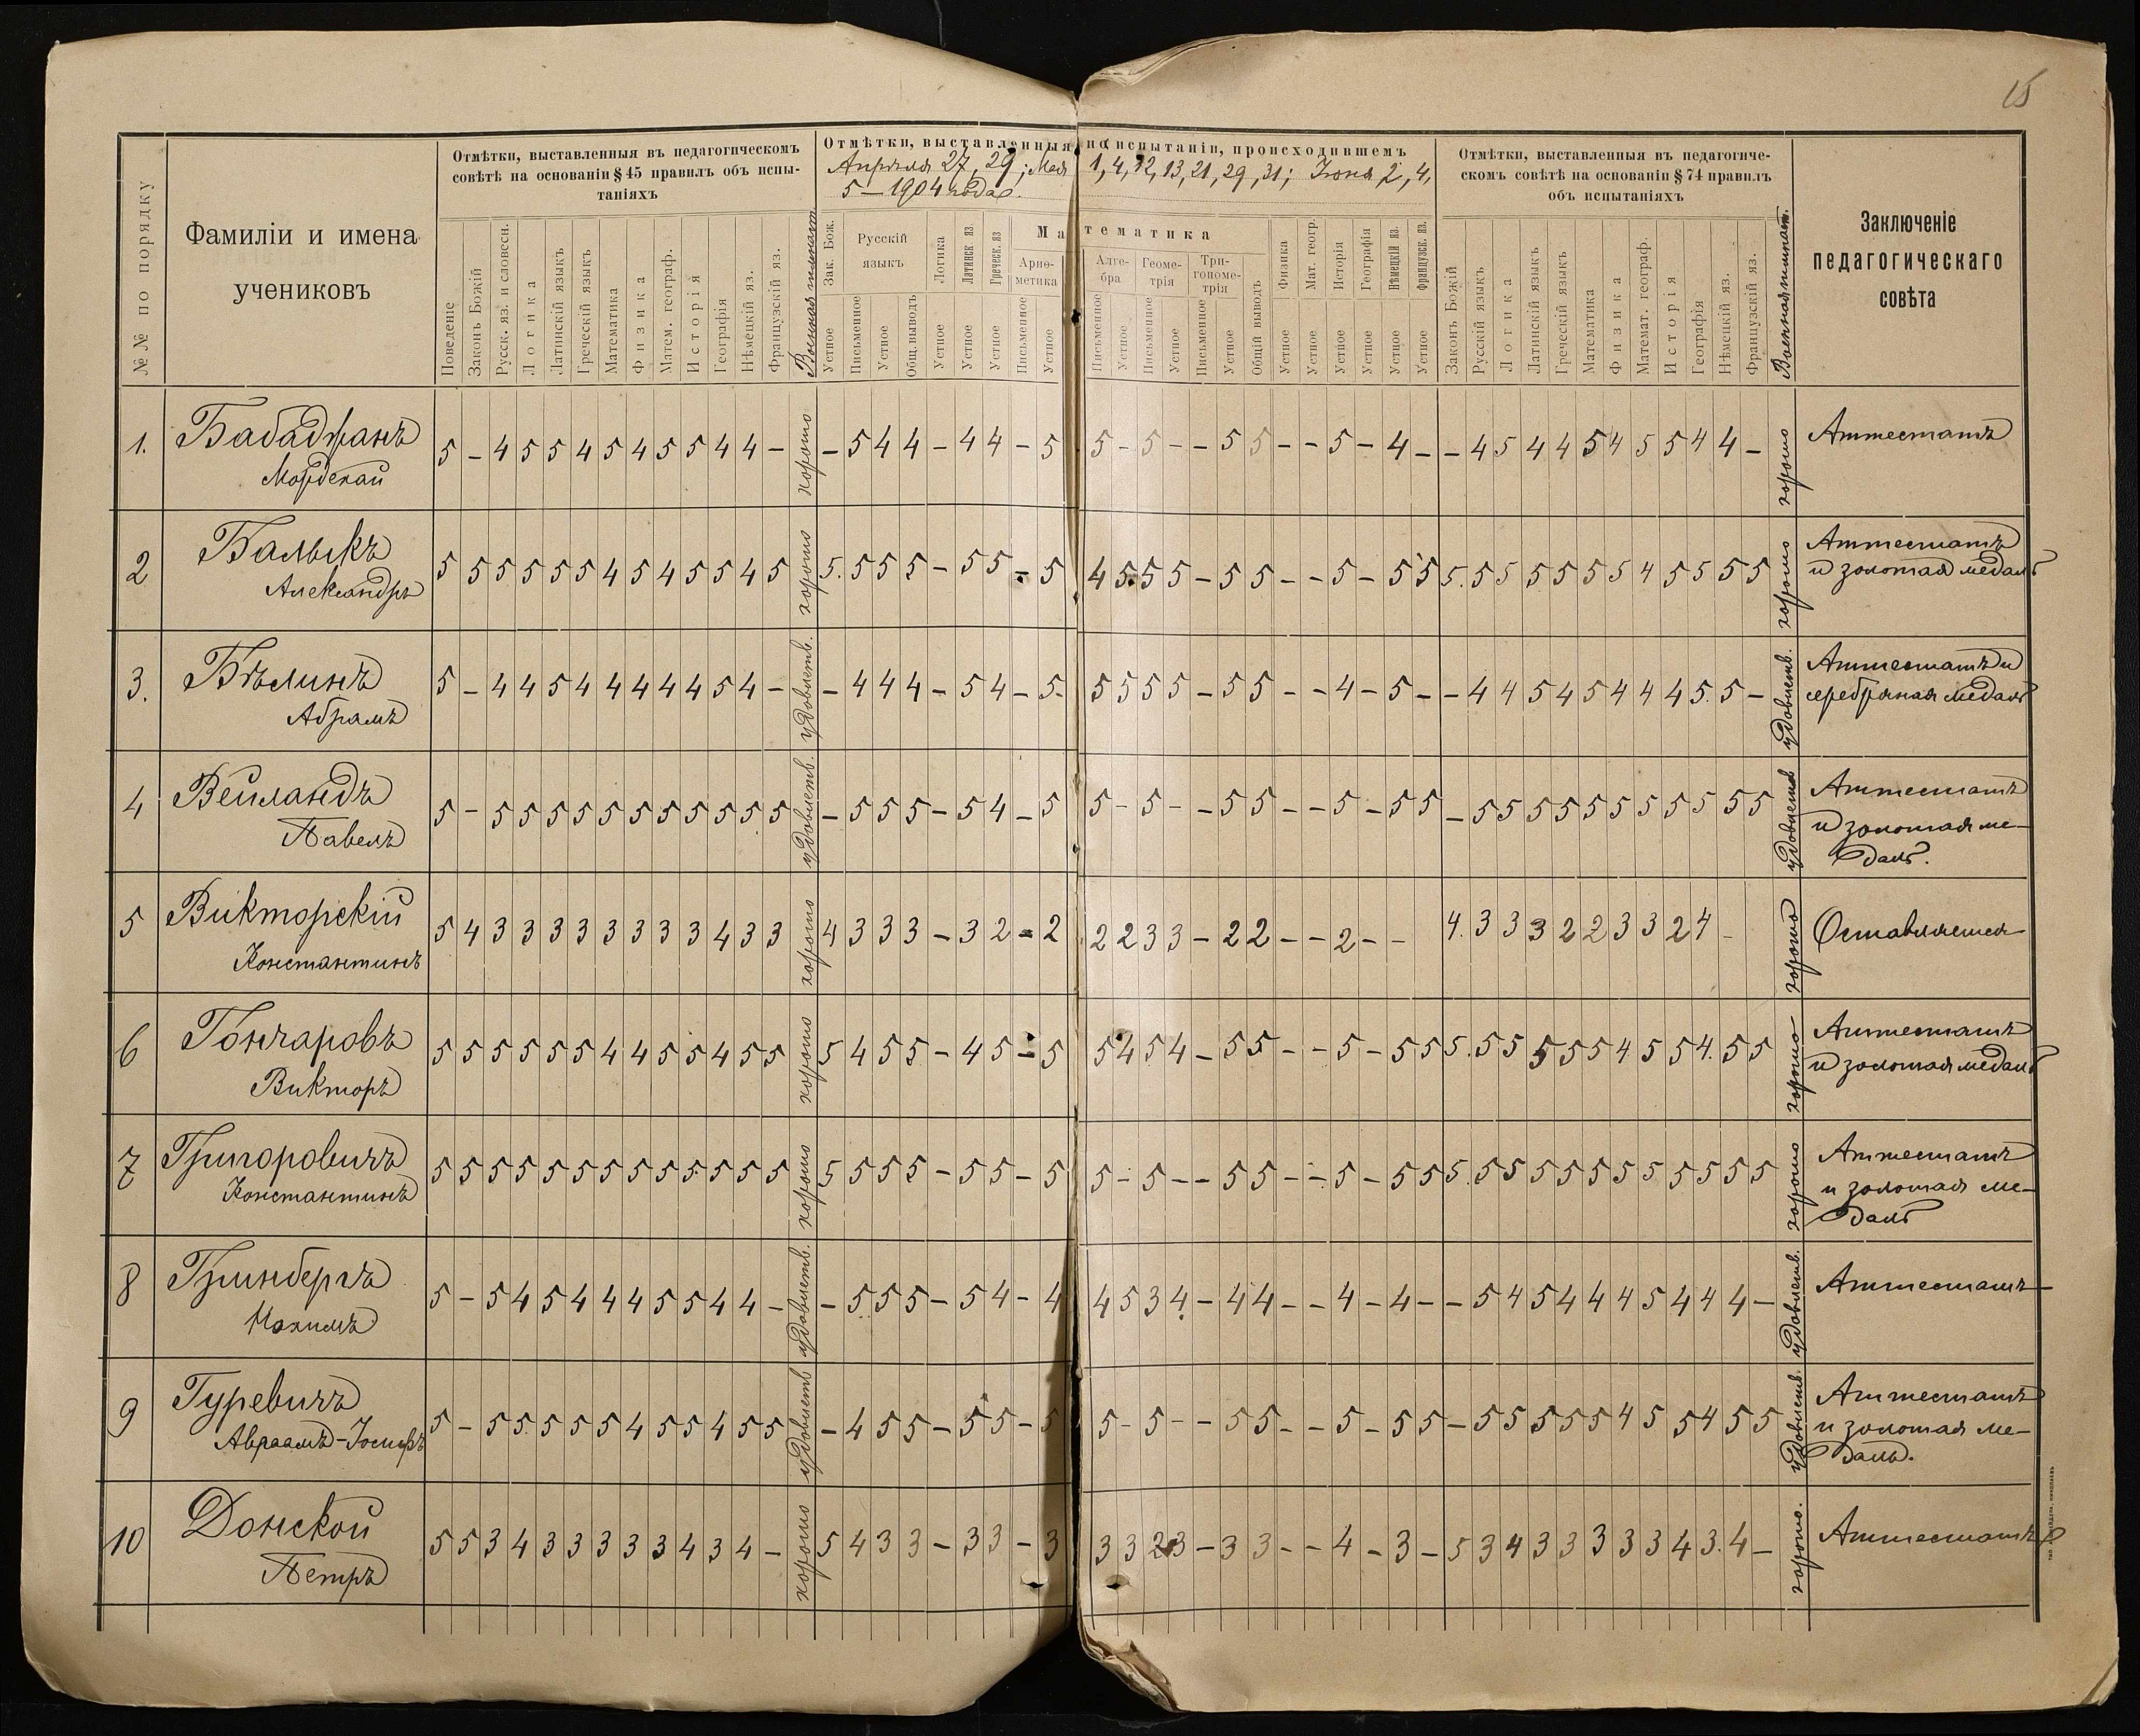 15
№№ по порядку
Фамиліи и имена
учениковъ
Отмѣтки, выставленныя въ педагогическомъ
совѣтѣ на основаніи § 45 правилъ объ испы-
таніяхъ
Поведеніе
Законъ Божій
Русск. яз. и словесн.
Логика
Латинскій языкъ
Греческій языкъ
Математика
Физика
Матем. географ.
Исторія
Географія
Нѣмецкій яз.
Французскій яз.
Отмѣтки, выставленныя по испытаніи, происходившемъ
Апрѣля 27, 29; Мая 1, 4, 12, 13, 21, 29, 31; Іюня 2, 4,
5 — 1904 года.
Зак. Бож.
Устное
Русскій
языкъ
Письменное
Устное
Общ. выводъ
Логика
Устное
Латинск яз.
Устное
Греческ. яз
Устное
Математика
Арие-
метика
Письменное
Устное
Алге-
бра
Письменное
Устное
Геоме-
трія
Письменное
Устное
Три-
гономе-
трія
Письменное
Устное
Общій выводъ
Физика
Устное
Мат. геогр.
Устное
Исторія
Устное
Географія
Устное
Нѣмецкій яз.
Устное
Французск. яз.
Устное
Отмѣтки, выставленныя въ педагогиче-
скомъ совѣтѣ на основаніи § 74 правилъ
объ испытаніяхъ
Законъ Божій
Русскій языкъ
Логика
Латинскій языкъ
Греческій языкъ
Математика
Физика
Математ. географ.
Исторія
Географія
Нѣмецкій яз.
Французскій яз.
Заключеніе
педагогическаго
совѣта
1. Бабаджанъ 5 – 4 5 5 4 5 4 5 5 4 4 – хорошо – 5 4 4 – 4 4 – 5 5 – 5 – – 5 5 – – 5 – 4 – – 4 5 4 4 5 4 5 5 4 4 – хорошо Аттестатъ
Мордекай
2 Балыкъ 5 5 5 5 5 5 4 5 4 5 5 4 5 хорошо 5. 5 5 5 – 5 5 – 5 4 5 5 5 – 5 5 – – 5 – 5 5 5. 5 5 5 5 5 5 4 5 5 5 5 хорошо Аттестатъ
Александръ и золотая медаль
3. Бѣлинъ 5 – 4 4 5 4 4 4 4 4 5 4 – удовлетв. – 4 4 4 – 5 4 – 5 5 5 5 5 – 5 5 – – 4 – 5 – – 4 4 5 4 5 4 4 4 5. 5 – удовлетв. Аттестатъ и
Абрамъ серебряная медаль
4 Вейландъ 5 – 5 5 5 5 5 5 5 5 5 5 5 удовлетв. – 5 5 5 – 5 4 – 5 5 – 5 – – 5 5 – – 5 – 5 5 – 5 5 5 5 5 5 5 5 5 5 5 удовлетв Аттестатъ
Павелъ и золотая ме-
даль.
5 Викторскій 5 4 3 3 3 3 3 3 3 3 4 3 3 хорошо 4 3 3 3 – 3 2 – 2 2 2 3 3 – 2 2 – – 2 – – 4. 3 3 3 2 2 3 3 2 4 – хорошо Оставляется
Константинъ
6 Гончаровъ 5 5 5 5 5 5 4 4 5 5 4 5 5 хорошо 5 4 5 5 – 4 5 – 5 5 4 5 4 – 5 5 – – 5 – 5 5 5. 5 5 5 5 5 4 5 5 4. 5 5 хорошо Аттестатъ
Викторъ и золотая медаль
7 Григоровичъ 5 5 5 5 5 5 5 5 5 5 5 5 5 хорошо 5 5 5 5 – 5 5 – 5 5 – 5 – – 5 5 – – 5 – 5 5 5. 5 5 5 5 5 5 5 5 5 5 5 хорошо Аттестатъ
Константинъ и золотая ме-
даль
8 Гринбергъ 5 – 5 4 5 4 4 4 5 5 4 4 – удовлетв. – 5 5 5 – 5 4 – 4 4 5 3 4 – 4 4 – – 4 – 4 – – 5 4 5 4 4 4 5 4 4 4 – удовлетв. Аттестатъ
Нахимъ
9 Гуревичъ 5 – 5 5 5 5 5 4 5 5 4 5 5 удовлетв – 4 5 5 – 5 5 – 5 5 – 5 – – 5 5 – – 5 – 5 5 – 5 5 5 5 5 4 5 5 4 5 5 удовлетв. Аттестатъ
Авраамъ-Іосифъ и золотая ме-
даль.
10 Донской 5 5 3 4 3 3 3 3 3 4 3 4 – хорошо 5 4 3 3 – 3 3 – 3 3 3 2 3 – 3 3 – – 4 – 3 – 5 3 4 3 3 3 3 3 4 3. 4 – хорошо. Аттестатъ
Петръ